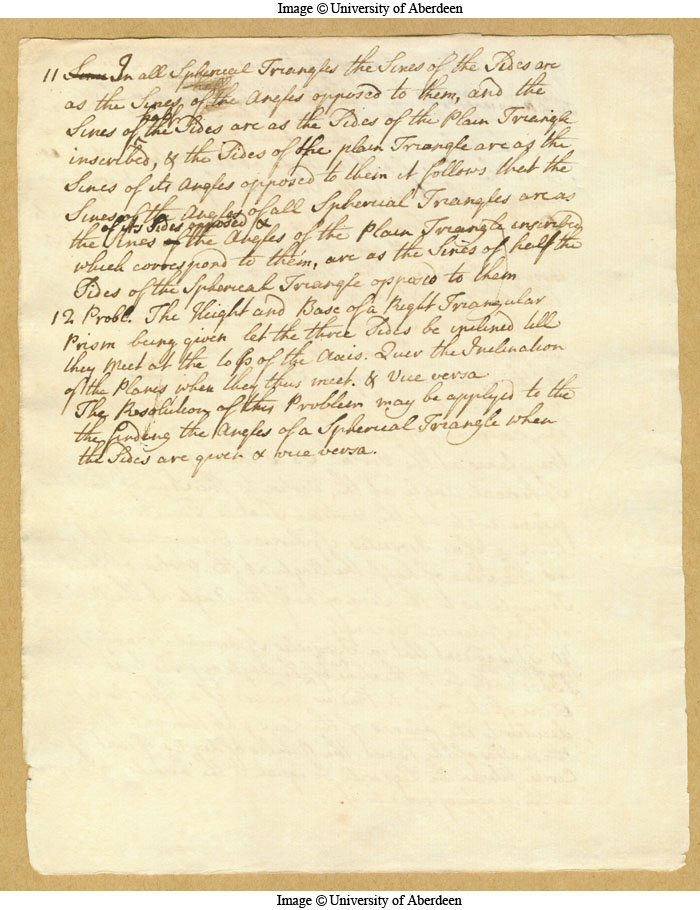 Image © University of Aberdeen
11 Sines In all Spherical Triangles the Sines of the Sides are
as the Sines of the Angles opposed to them, and the
Sines of half the Sides are as the Sides of the Plain Triangle
inscribed, & the Sides of the plain Triangle are as the
Sines of its Angles opposed to them it follows that the
Sines of the Angles of all Spherical Triangles are as
of its Sides opposed &
the Sines the Angles of the Plain Triangle inscribed
which correspond to them, are as the Sines of half the
Sides of the Spherical Triangle opposed to them
12 Probl. The Height and Base of a Right Triangular
Prism being given let the three Sides be inclined till
they meet at the top of the Axis. Quer the Inclination
of the Planes when they thus meet. & Vice versa
The Resolution of this Problem may be applyed to the
the finding the Angles of a Spherical Triangle when
the Sides are given & vice versa.
Image © University of Aberdeen